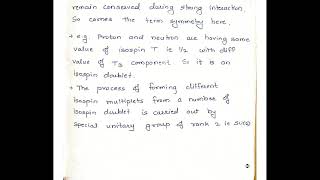 remain conserved during strong interaction.
So comes the term symmetry here.
→ e.g. Proton and neutron are having same
value of isospin T ie 1/2 with diff
value of T3 component. So it is an
isospin doublet.
→ The process of forming different
isospin multiplets from a number of
isospin doublet is carried out by
special unitary group of rank 2 ie SU(2)